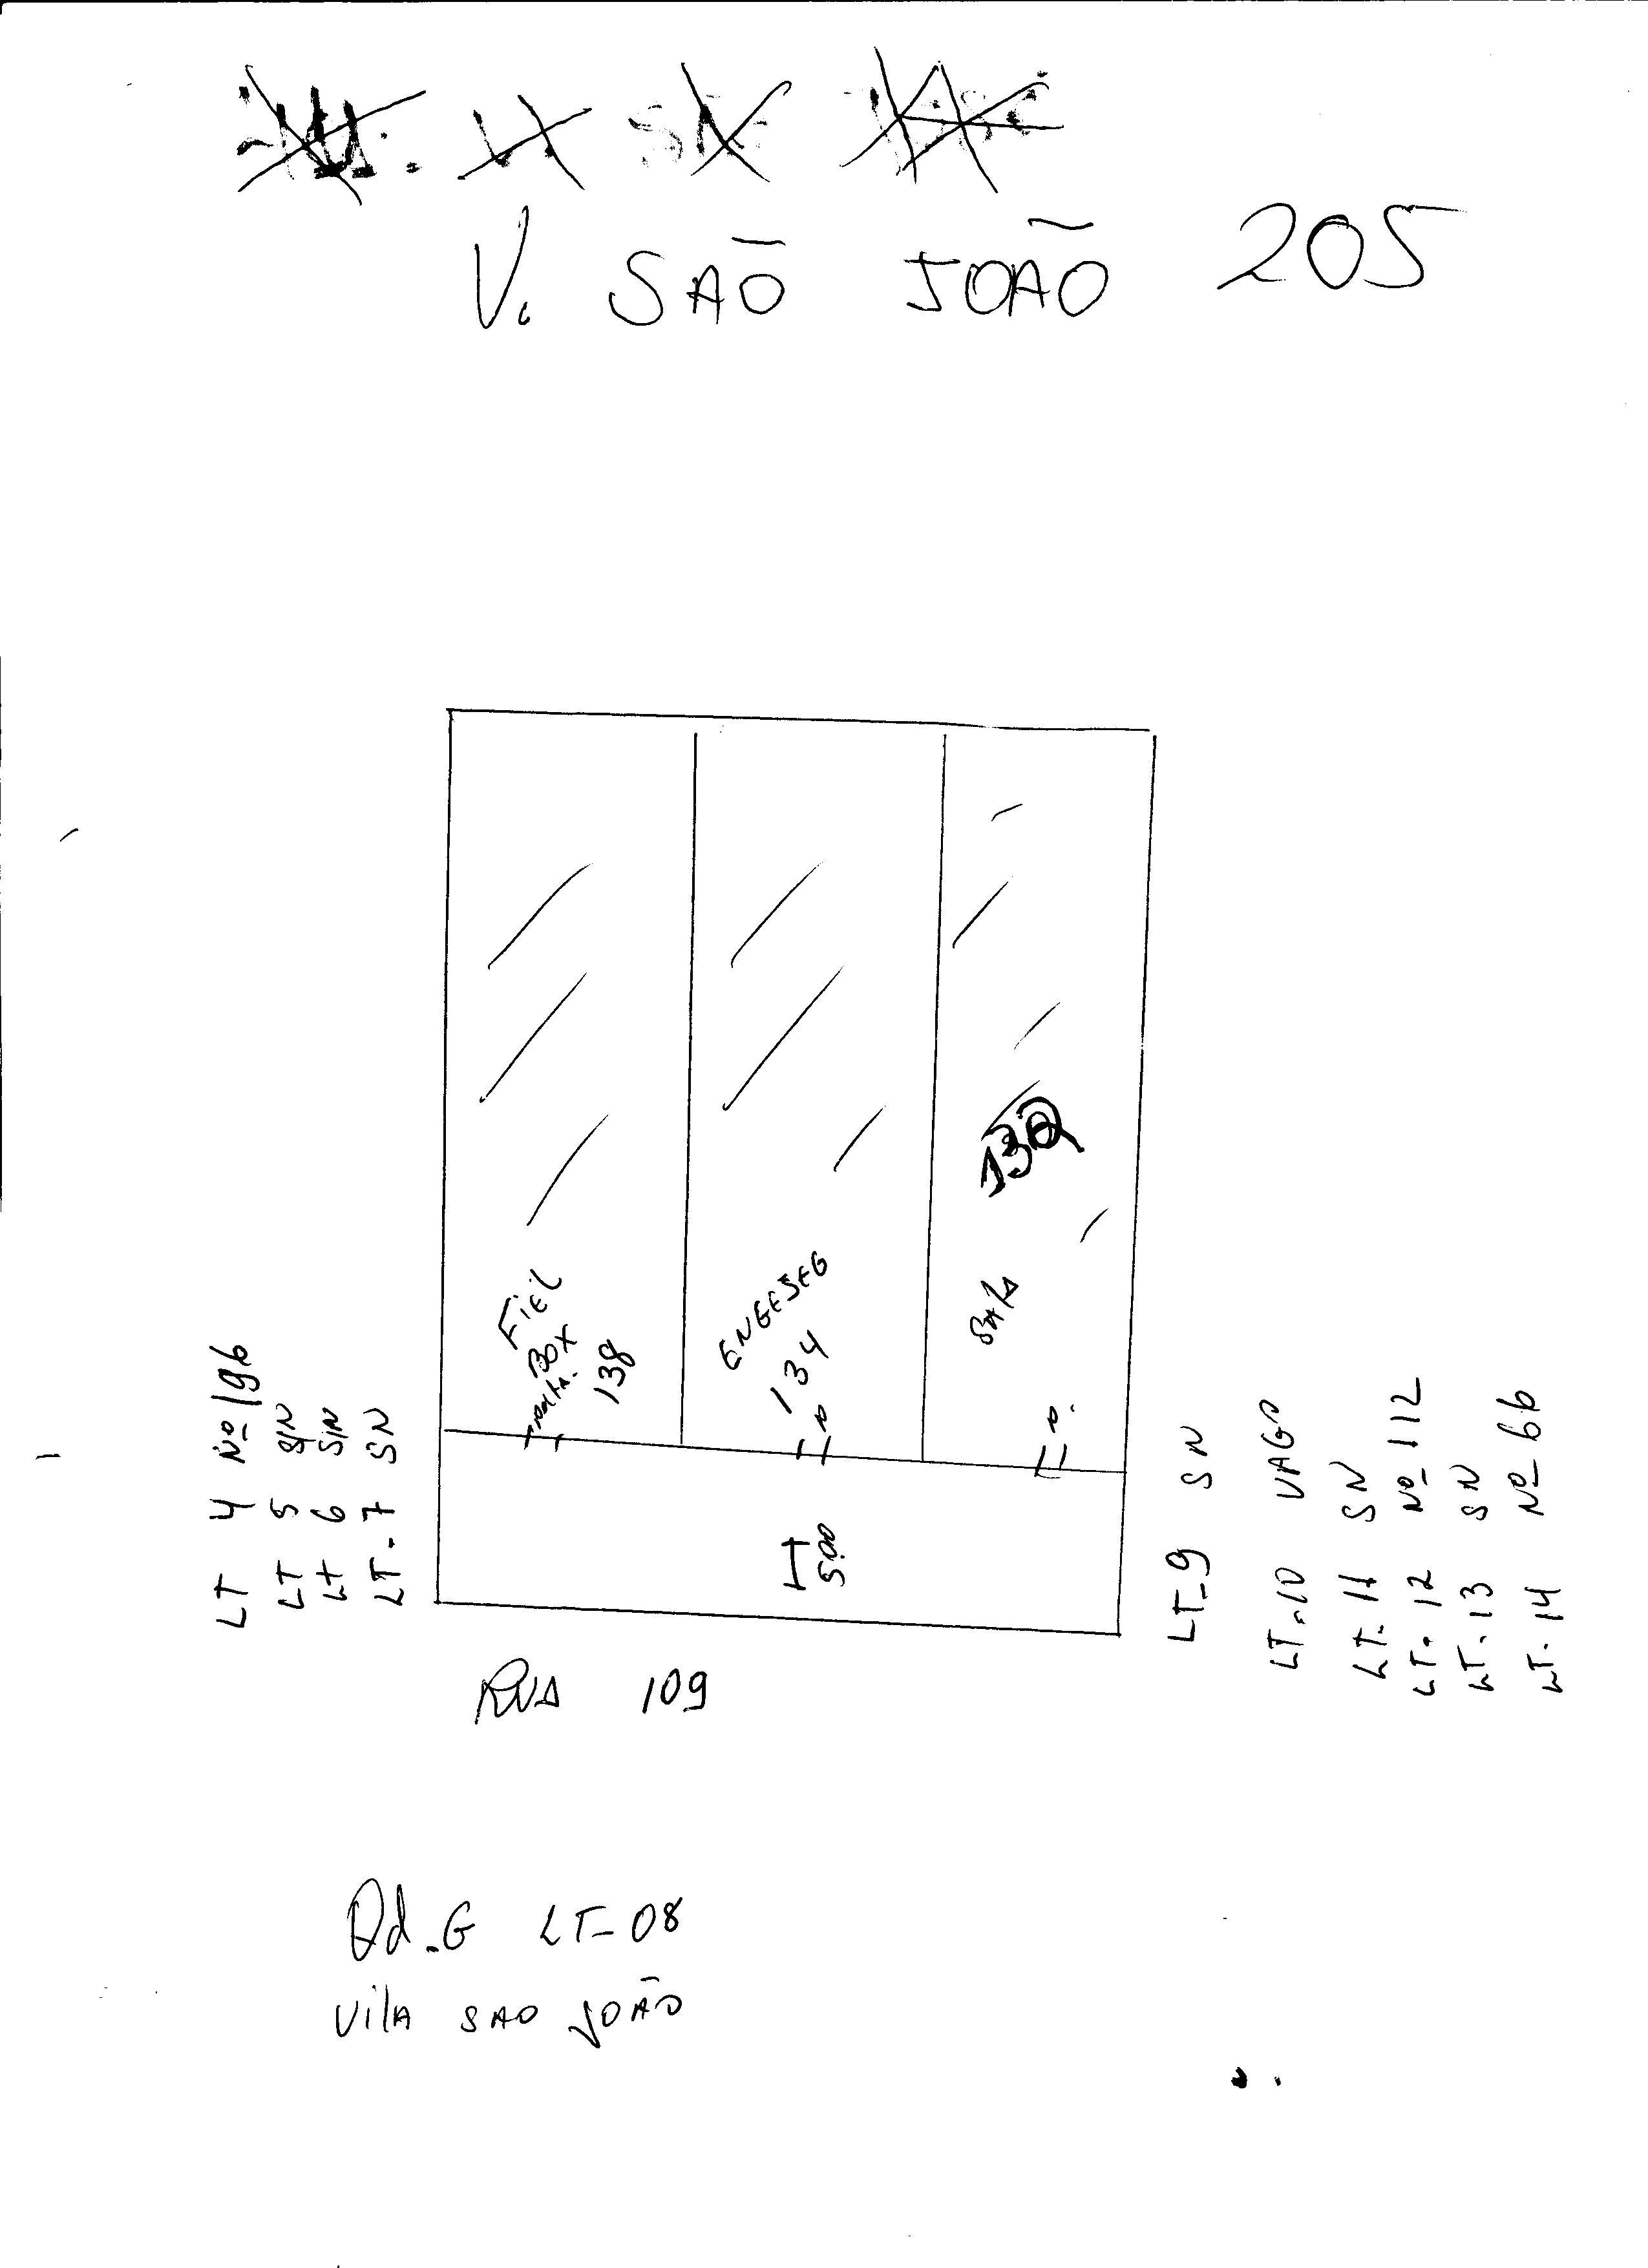 V. SAÕ JOÃÕ 205
FiEL
BOX
138
ENGESEG
134
132
LT 4 Nº 196
LT 5 S/N
LT 6 S/N
LT. 7 SN
5.00
LT-9 SN
LT-10 VAGO
LT. 11 SN
LT. 12 Nº 112
LT. 13 SN
LT. 14 Nº 66
RUA 109
Qd-G LT-08
ViLA SAO JOÃO